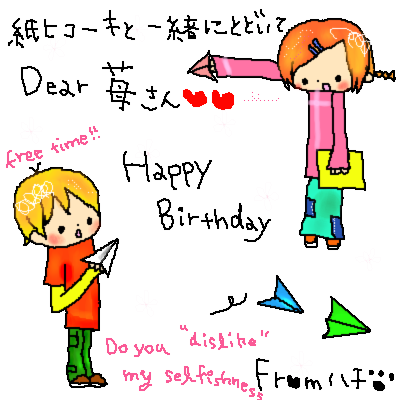 紙ヒコーキと一緒にとどいて
Dear 苺さん
free time!!
Happy
Birthday
Do you "dislike"
my selfishness
From ハチ